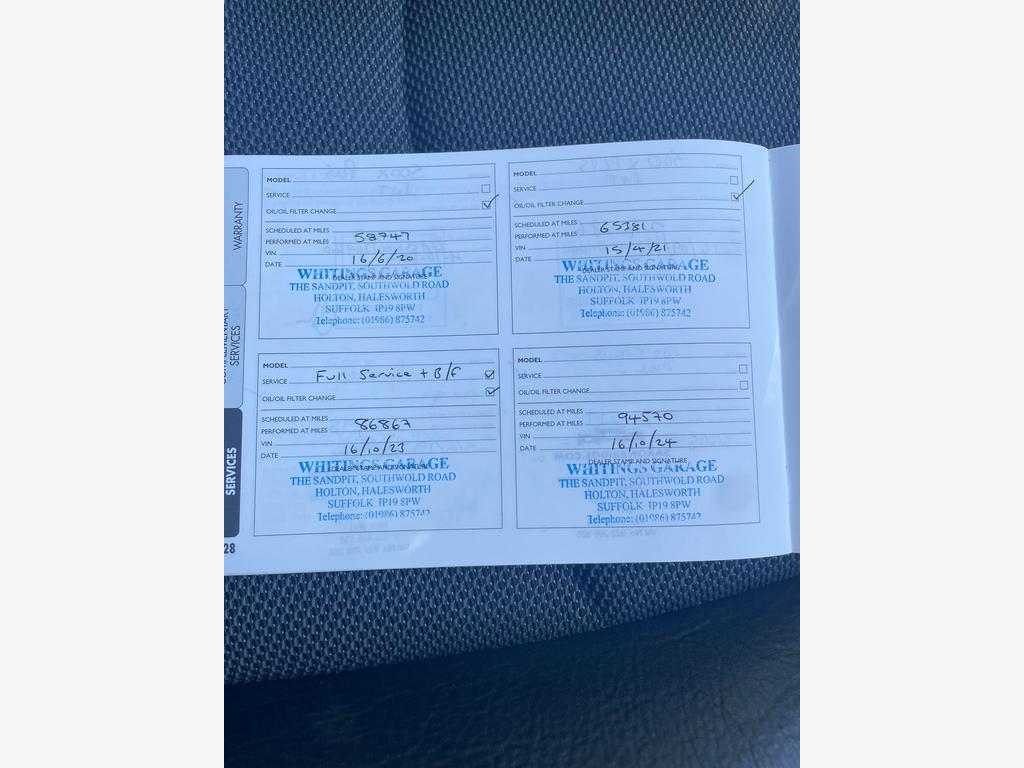 WARRANTY
SERVICES
SERVICES
28
MODEL
SERVICE
OIL/OIL FILTER CHANGE
SCHEDULED AT MILES
PERFORMED AT MILES 58747
VIN
DATE 16/6/20
DEALER STAMP AND SIGNATURE
WHITINGS GARAGE
THE SANDPIT, SOUTHWOLD ROAD
HOLTON, HALESWORTH
SUFFOLK IP19 8PW
Telephone: (01986) 875742
MODEL
SERVICE
OIL/OIL FILTER CHANGE
SCHEDULED AT MILES
PERFORMED AT MILES 65381
VIN
DATE 15/4/21
DEALER STAMP AND SIGNATURE
WHITINGS GARAGE
THE SANDPIT, SOUTHWOLD ROAD
HOLTON, HALESWORTH
SUFFOLK IP19 8PW
Telephone: (01986) 875742
MODEL
SERVICE Full Service + B/F
OIL/OIL FILTER CHANGE
SCHEDULED AT MILES
PERFORMED AT MILES 86867
VIN
DATE 16/10/23
DEALER STAMP AND SIGNATURE
WHITINGS GARAGE
THE SANDPIT, SOUTHWOLD ROAD
HOLTON, HALESWORTH
SUFFOLK IP19 8PW
Telephone: (01986) 875742
MODEL
SERVICE
OIL/OIL FILTER CHANGE
SCHEDULED AT MILES
PERFORMED AT MILES 94570
VIN
DATE 16/10/24
DEALER STAMP AND SIGNATURE
WHITINGS GARAGE
THE SANDPIT, SOUTHWOLD ROAD
HOLTON, HALESWORTH
SUFFOLK IP19 8PW
Telephone: (01986) 875742